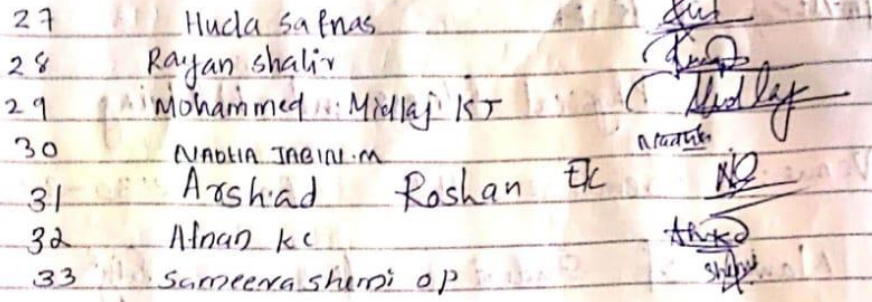 27 Huda Safnas
28 Rayan shalir
29 Mohammed Midlaj KT Midlaj
30 NADHA JABIN.M Nadha
31 Arshad Roshan EK
32 Afnan kc
33 Sameera shemi op